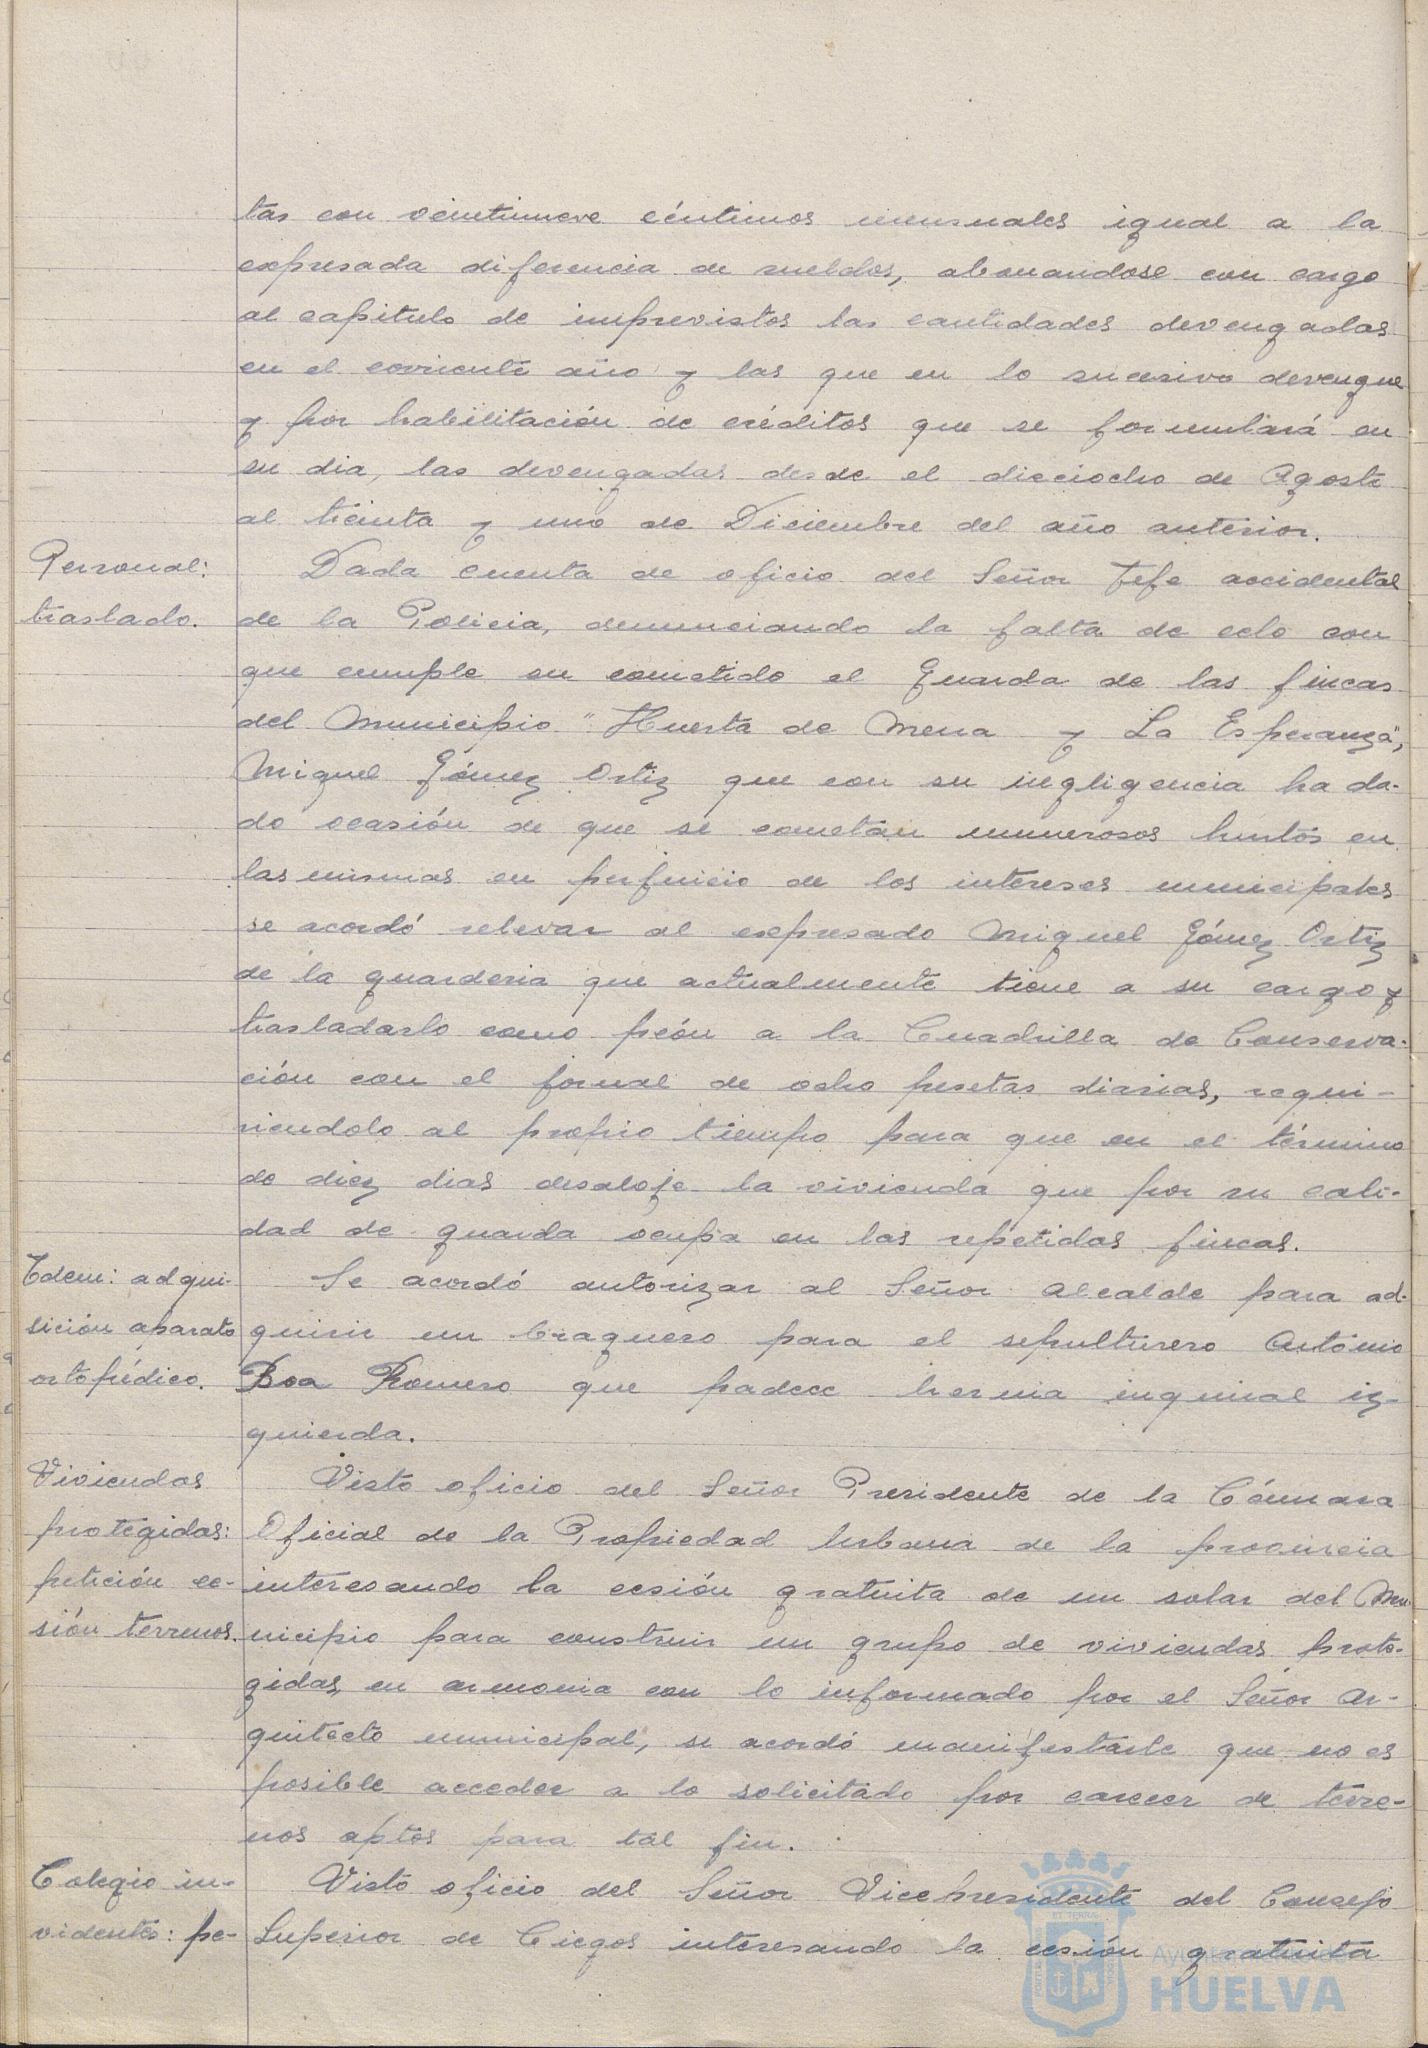 tas con veintinueve céntimos mensuales igual a la
expresada diferencia de sueldos, abonandose con cargo
al capitulo de imprevistos las cantidades devengadas
en el corriente año y las que en lo sucesivo devengue
y por habilitación de créditos que se formulará en
su dia, las devengadas desde el dieciocho de Agosto
al treinta y uno de Diciembre del año anterior.
Personal:
traslado.
Dada cuenta de oficio del Señor Jefe accidental
de la Policia, denunciando la falta de celo con
que cumple su cometido el Guarda de las fincas
del Municipio "Huerta de Mena y La Esperanza",
Miguel Gómez Ortiz que con su negligencia ha da-
do ocasión de que se cometan numerosos hurtos en
las mismas en perjuicio de los intereses municipales
se acordó relevar al expresado Miguel Gómez Ortiz
de la guarderia que actualmente tiene a su cargo y
trasladarlo como peón a la Cuadrilla de Conserva-
ción con el jornal de ocho pesetas diarias, requi-
riendolo al propio tiempo para que en el término
de diez dias desaloje la vivienda que por su cali-
dad de guarda ocupa en las repetidas fincas.
Idem: adqui-
sición aparato
ortopédico.
Se acordó autorizar al Señor Alcalde para ad-
quirir un braguero para el sepulturero Antonio
Boa Romero que padece hernia inguinal iz-
quierda.
Viviendas
protegidas:
petición ce-
sión terrenos.
Visto oficio del Señor Presidente de la Cámara
Oficial de la Propiedad Urbana de la provincia
interesando la cesión gratuita de un solar del Mu
nicipio para construir un grupo de viviendas prote-
gidas, en armonia con lo informado por el Señor Ar-
quitecto municipal, se acordó manifestarle que no es
posible acceder a lo solicitado por carecer de terre-
nos aptos para tal fin.
Colegio in-
videntes: pe-
Visto oficio del Señor Vicepresidente del Consejo
Superior de Ciegos interesando la cesión gratuita
Ayuntamiento de
HUELVA